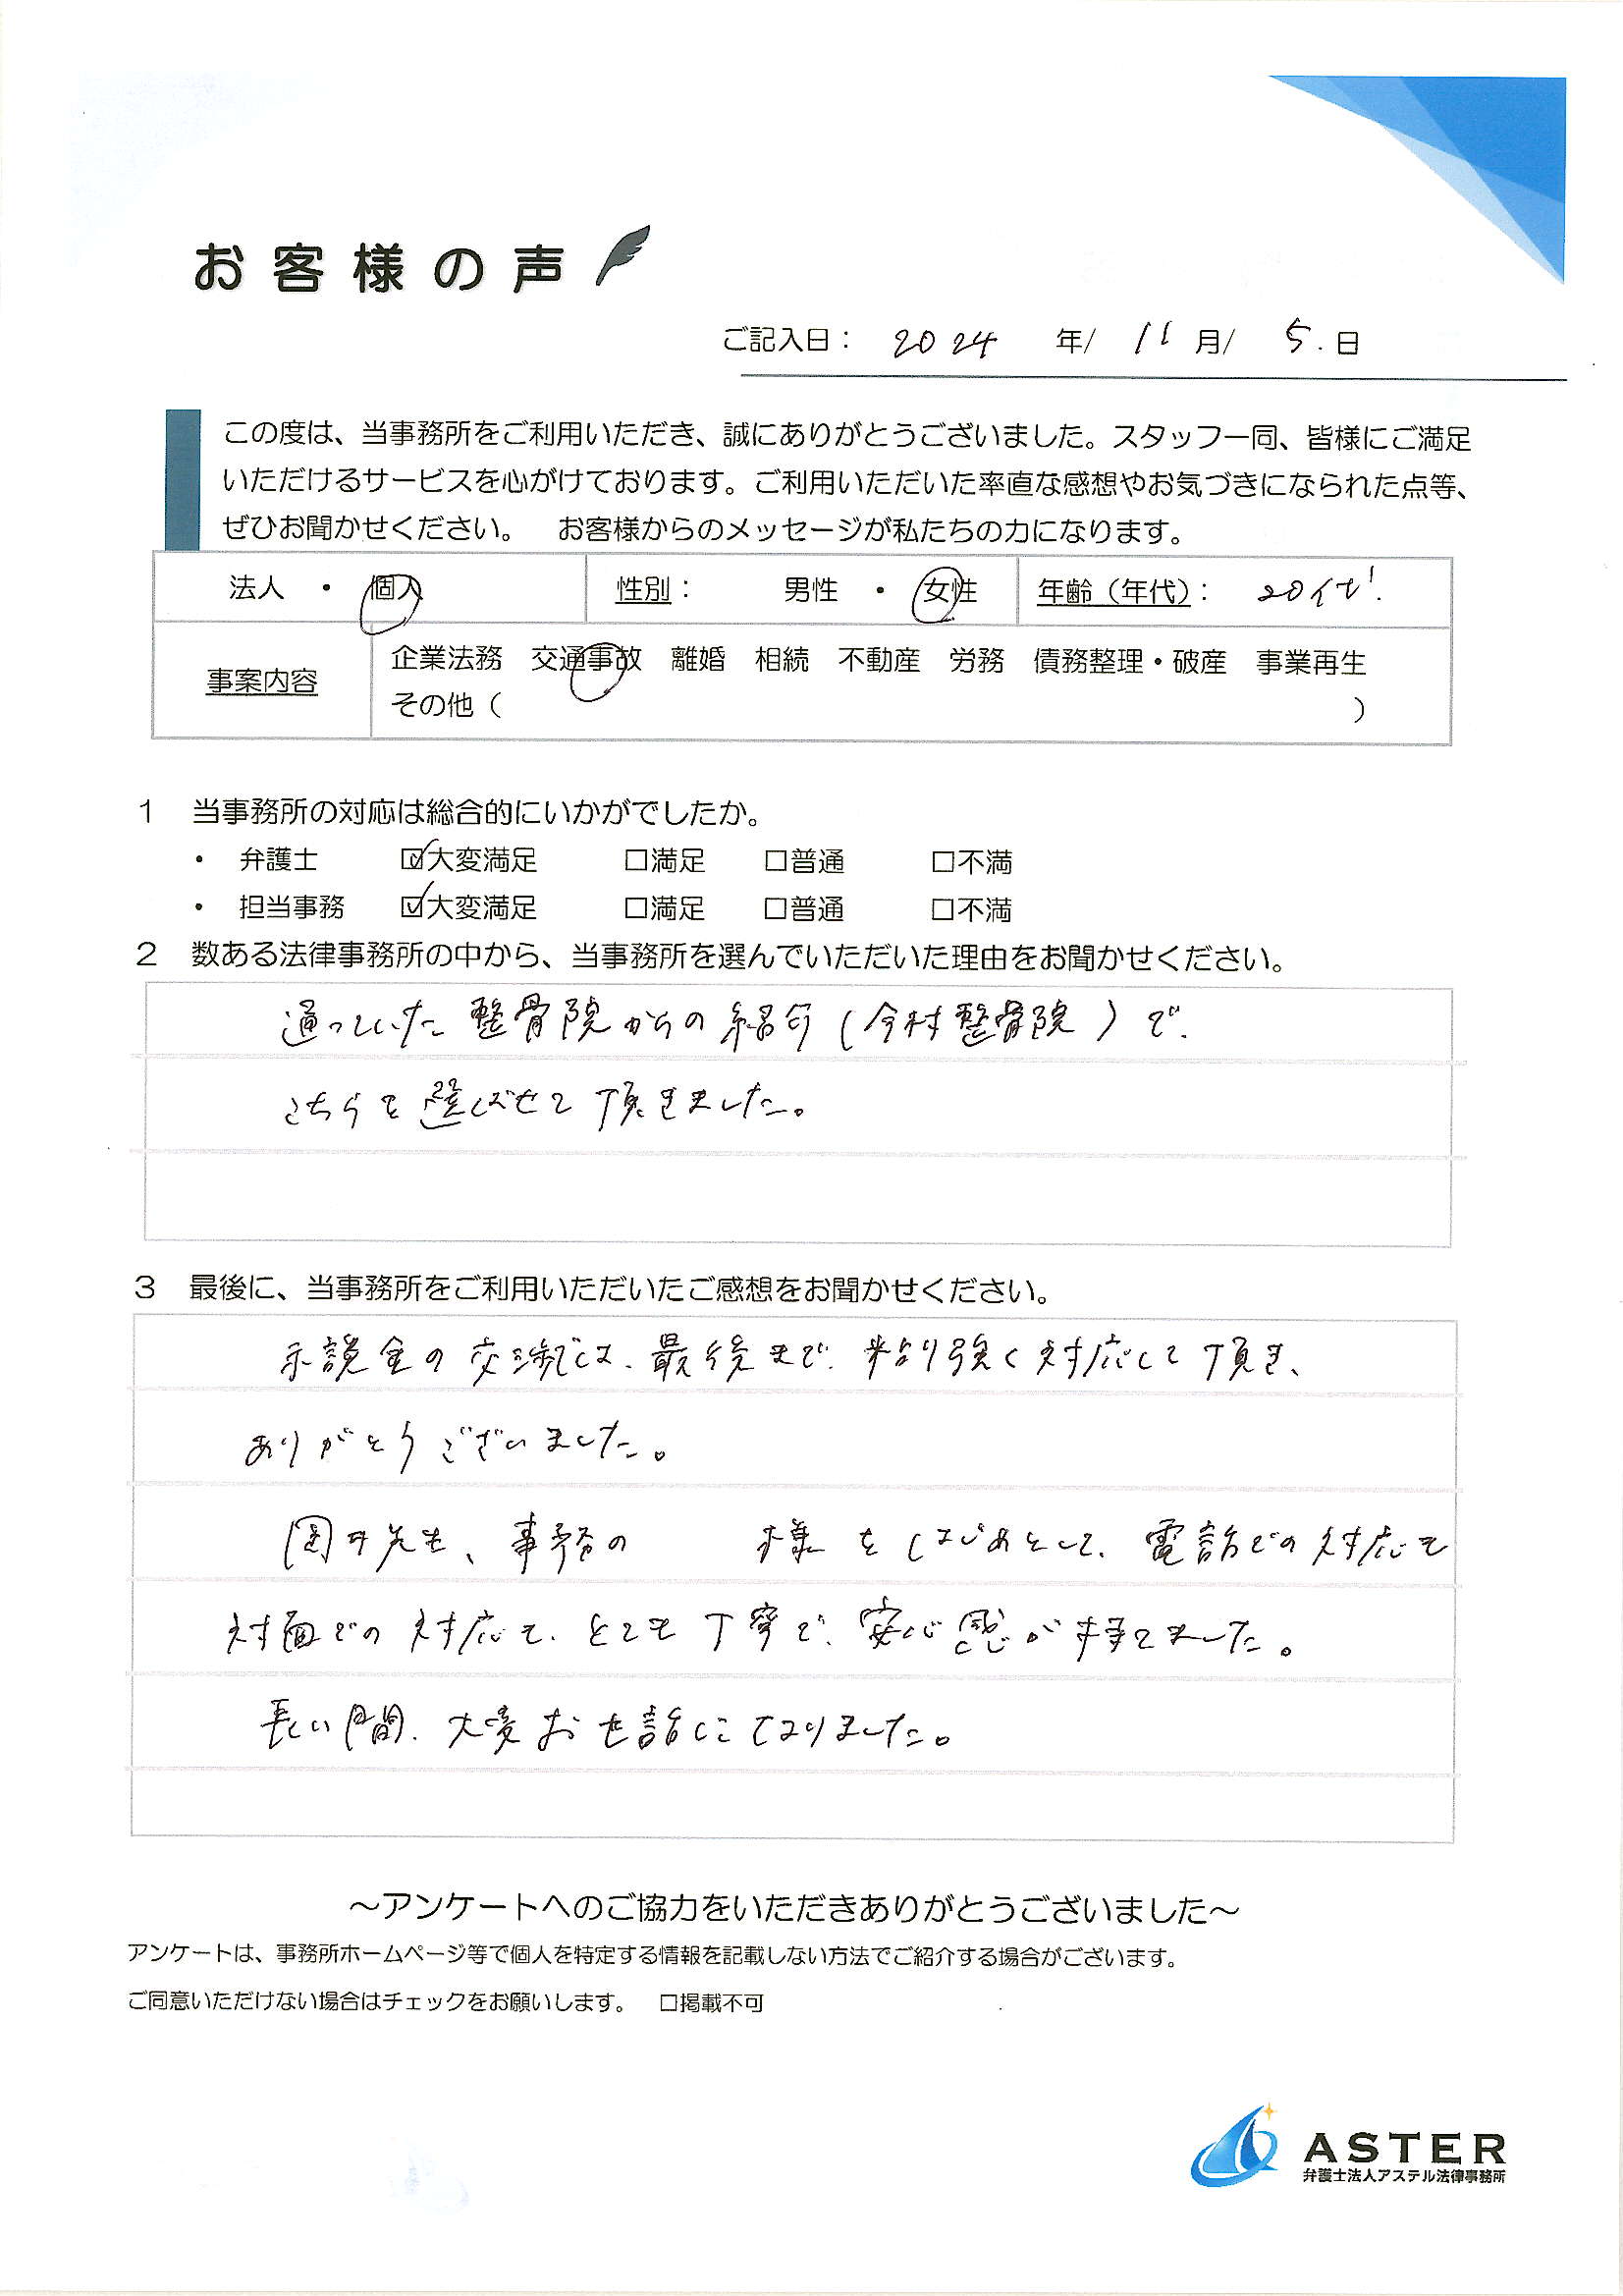 お客様の声
ご記入日： 2024 年/ 11 月/ 5. 日
この度は、当事務所をご利用いただき、誠にありがとうございました。スタッフ一同、皆様にご満足
いただけるサービスを心がけております。ご利用いただいた率直な感想やお気づきになられた点等、
ぜひお聞かせください。 お客様からのメッセージが私たちの力になります。
法人 ・ 個人 性別： 男性 ・ 女性 年齢（年代）： 20代
事案内容 企業法務 交通事故 離婚 相続 不動産 労務 債務整理・破産 事業再生
その他（ ）
1 当事務所の対応は総合的にいかがでしたか。
・ 弁護士 ☑大変満足 □満足 □普通 □不満
・ 担当事務 ☑大変満足 □満足 □普通 □不満
2 数ある法律事務所の中から、当事務所を選んでいただいた理由をお聞かせください。
通っていた整骨院からの紹介（今村整骨院）で、
こちらを選ばせて頂きました。
3 最後に、当事務所をご利用いただいたご感想をお聞かせください。
示談金の交渉では、最後まで、粘り強く対応して頂き、
ありがとうございました。
井先生、事務の 様をはじめとして、電話での対応も
対面での対応も、とても丁寧で、安心感が持てました。
長い間、大変お世話になりました。
～アンケートへのご協力をいただきありがとうございました～
アンケートは、事務所ホームページ等で個人を特定する情報を記載しない方法でご紹介する場合がございます。
ご同意いただけない場合はチェックをお願いします。 □掲載不可
ASTER
弁護士法人アステル法律事務所